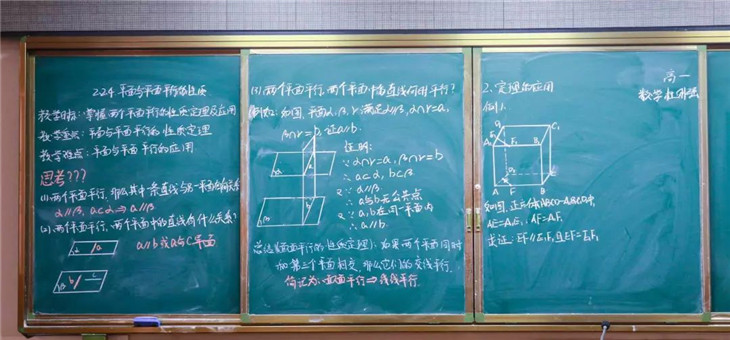 2.2.4 平面与平面平行的性质
教学目标: 掌握两个平面平行的性质定理及应用
教学重点: 平面与平面平行的性质定理
教学难点: 平面与平面平行的应用
思考???
(1) 两个平面平行, 那么其中一条直线与另一平面
α∥β, a⊂α ⇒ a∥β
(2) 两个平面平行, 两个平面中的直线有什么关系?
a∥b 或 a与c异面
α a
β b c
(3) 两个平面平行, 两个平面中的直线何时平行?
例题: 如图, 平面α, β, γ满足α∥β, α∩γ=a,
β∩γ=b, 证a∥b.
证明:
∵α∩γ=a, β∩γ=b
∴a⊂α, b⊂β
又∵α∥β
∴a与b无公共点
又∵a,b在同一平面内
∴a∥b.
α a
β b
总结(面面平行的性质定理): 如果两个平面同时
和第三个平面相交, 那么它们的交线平行.
简记为: 面面平行⇒线线平行
2. 定理的应用
例1.
高一
数学
A₁ E₁ F₁ B₁ C₁
D
A F B
如图, 正方体ABCD-A₁B₁C₁D₁中,
AE=A₁E₁, AF=A₁F₁
求证: EF∥E₁F₁且EF=E₁F₁